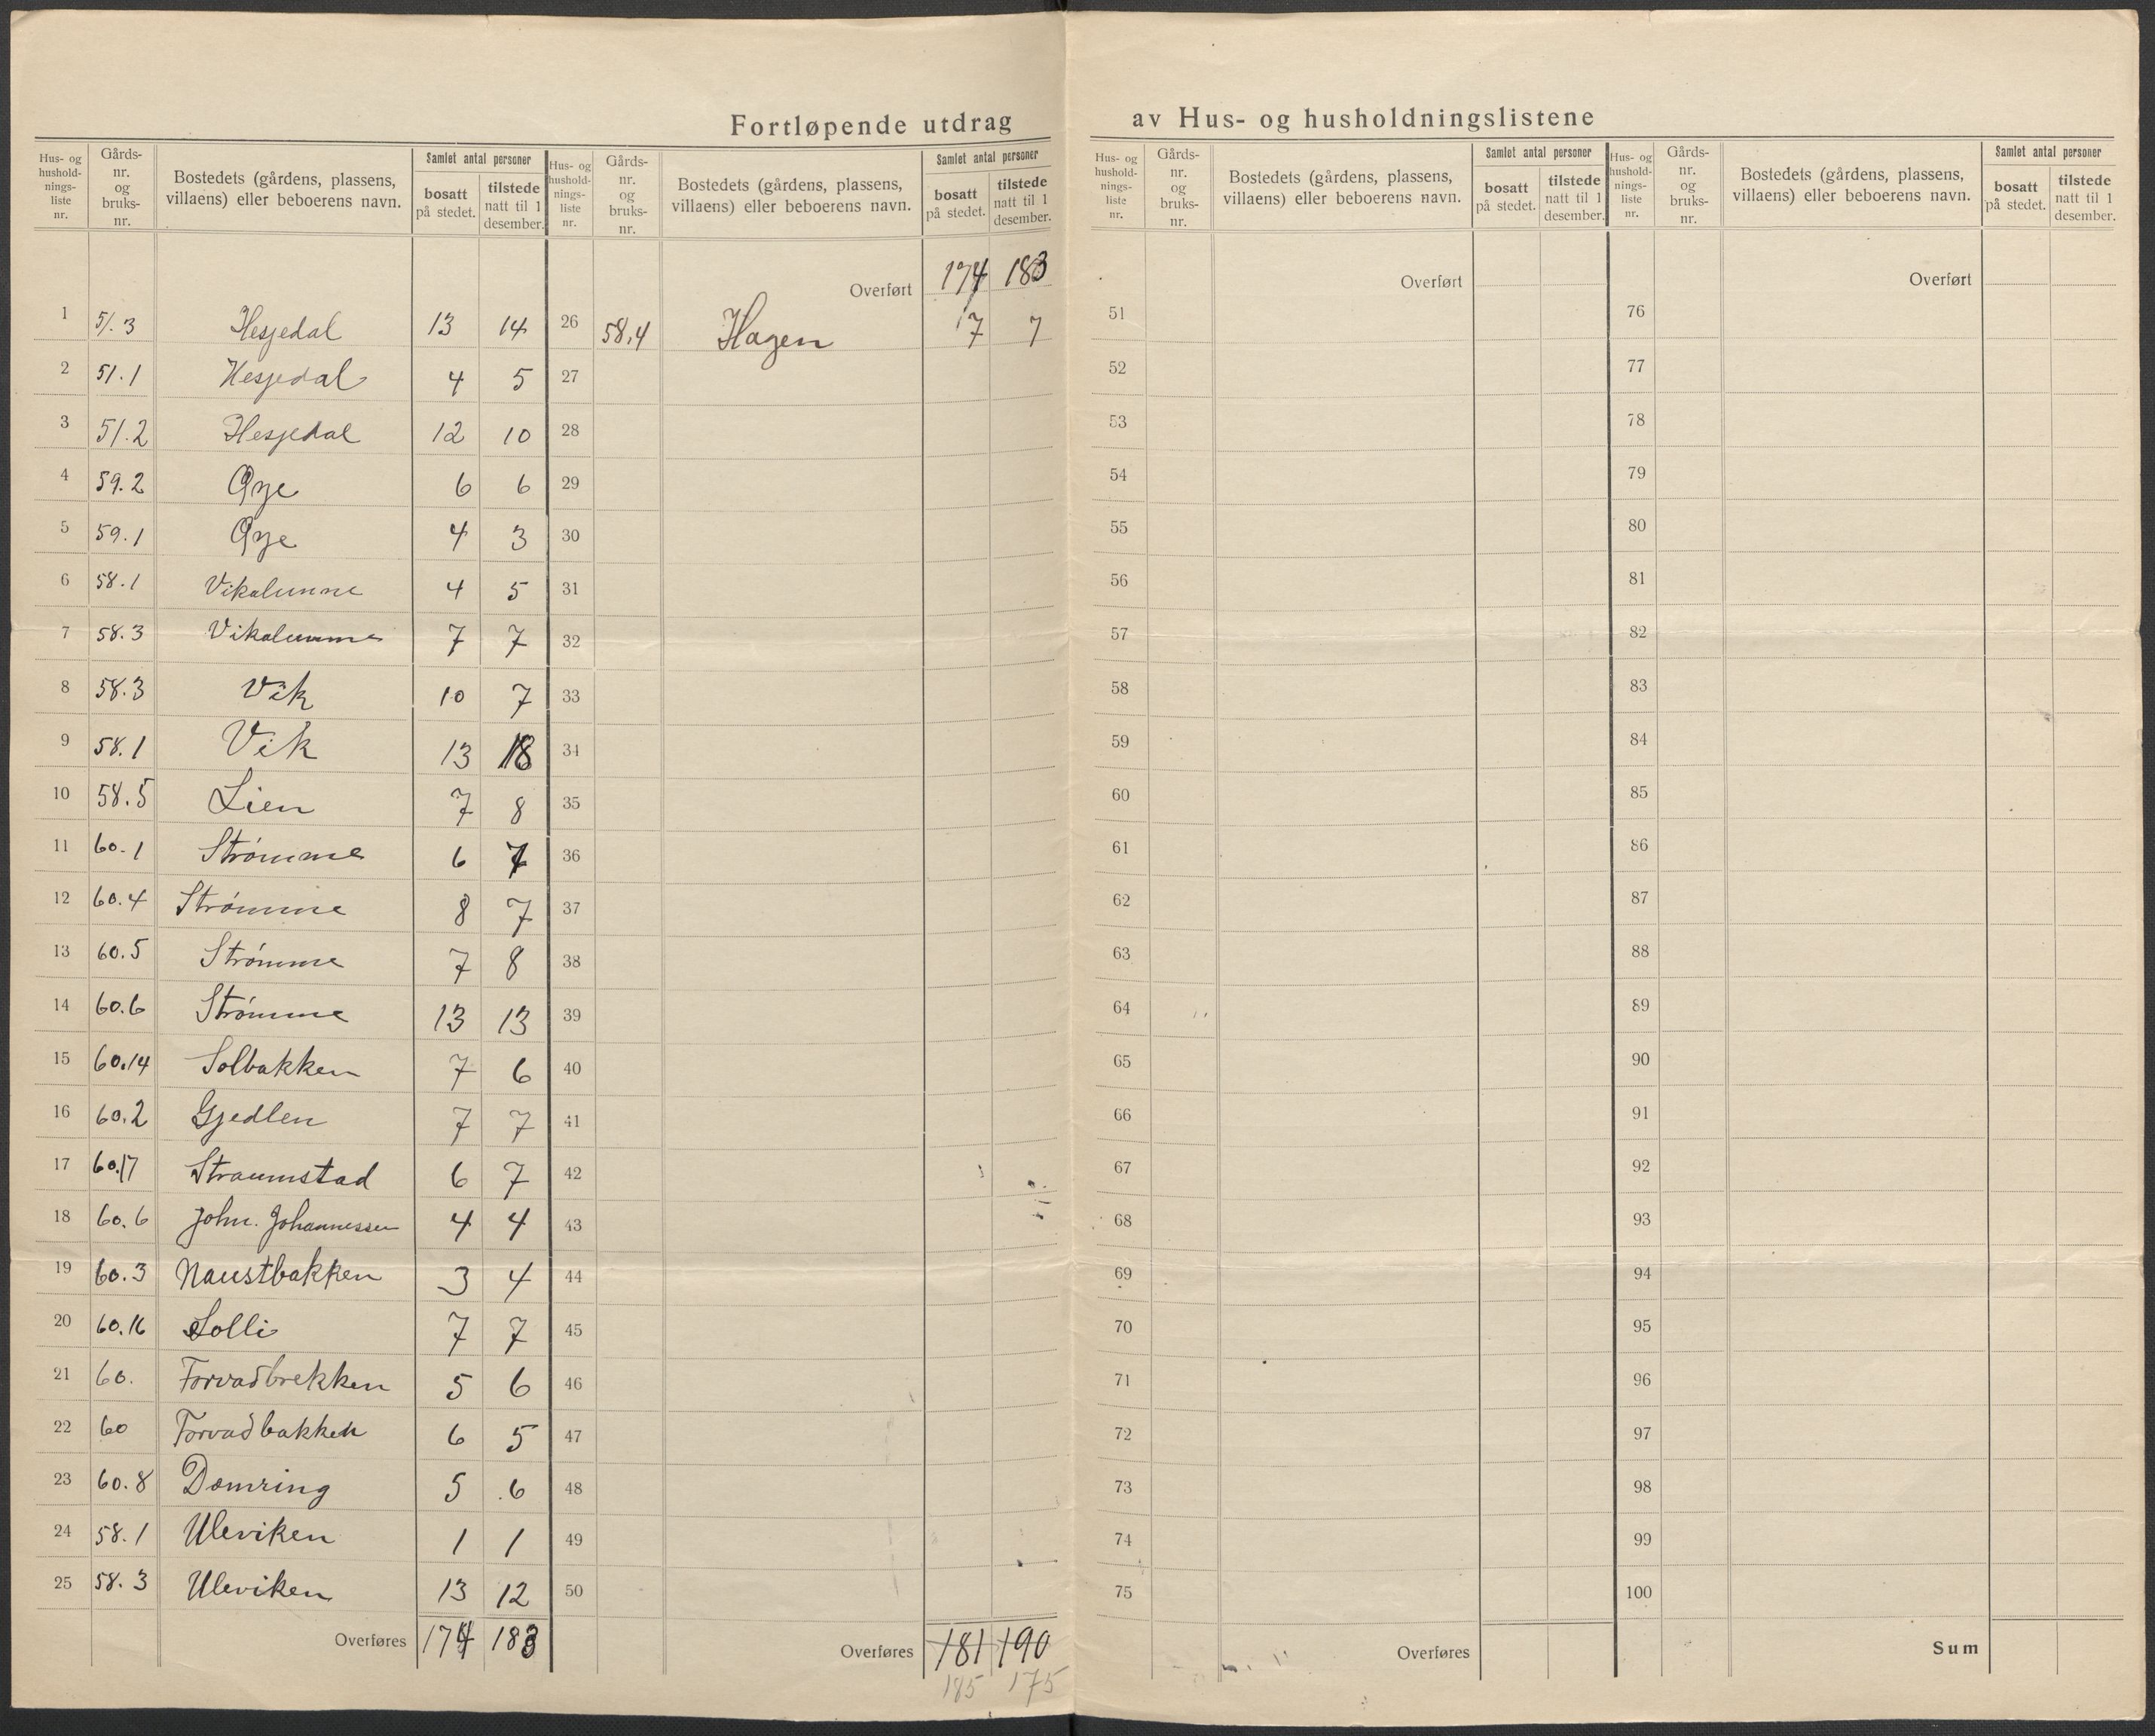 Fortløpende utdrag av Hus- og husholdningslistene
Hus- og hushold- nings- liste nr. | Gårds- nr. og bruks- nr. | Bostedets (gårdens, plassens, villaens) eller beboerens navn. | Samlet antal personer | bosatt på stedet. | tilstede natt til 1 desember.
1 51.3 Hesjedal 13 14
2 51.1 Hesjedal 4 5
3 51.2 Hesjedal 12 10
4 59.2 Øye 6 6
5 59.1 Øye 4 3
6 58.1 Vikalunne 4 5
7 58.3 Vikalunne 7 7
8 58.3 Vik 10 7
9 58.1 Vik 13 18
10 58.5 Lien 7 8
11 60.1 Strømme 6 7
12 60.4 Strømme 8 7
13 60.5 Strømme 7 8
14 60.6 Strømme 13 13
15 60.14 Solbakken 7 6
16 60.2 Gjedlen 7 7
17 60.17 Straumstad 6 7
18 60.6 John. Johannessen 4 4
19 60.3 Naustbakken 3 4
20 60.16 Solli 7 7
21 60. Forvadbrekken 5 6
22 60 Forvadbakken 6 5
23 60.8 Domring 5 6
24 58.1 Uleviken 1 1
25 58.3 Uleviken 13 12
Overføres 174 183
Hus- og hushold- nings- liste nr. | Gårds- nr. og bruks- nr. | Bostedets (gårdens, plassens, villaens) eller beboerens navn. | Samlet antal personer | bosatt på stedet. | tilstede natt til 1 desember.
Overført 174 183
26 58,4 Hagen 7 7
27
28
29
30
31
32
33
34
35
36
37
38
39
40
41
42
43
44
45
46
47
48
49
50
Overføres 181 190
185 175
Hus- og hushold- nings- liste nr. | Gårds- nr. og bruks- nr. | Bostedets (gårdens, plassens, villaens) eller beboerens navn. | Samlet antal personer | bosatt på stedet. | tilstede natt til 1 desember.
Overført
51
52
53
54
55
56
57
58
59
60
61
62
63
64
65
66
67
68
69
70
71
72
73
74
75
Overføres
Hus- og hushold- nings- liste nr. | Gårds- nr. og bruks- nr. | Bostedets (gårdens, plassens, villaens) eller beboerens navn. | Samlet antal personer | bosatt på stedet. | tilstede natt til 1 desember.
Overført
76
77
78
79
80
81
82
83
84
85
86
87
88
89
90
91
92
93
94
95
96
97
98
99
100
Sum